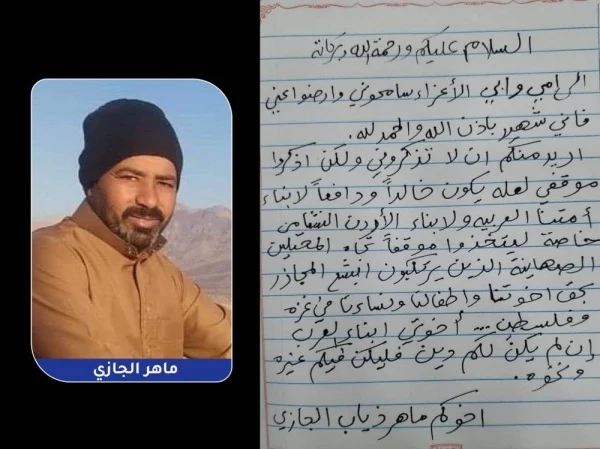 السلام عليكم ورحمة الله وبركاته
الى امي وابي الأعزاء سامحوني وارضوا عني
فاني شهيد باذن الله والحمد لله.
اريد منكم ان لا تذكروني ولكن اذكروا
موقفي لعله يكون خالداً ودافعاً لابناء
أمتنا العربيه ولابناء الأردن النشامى
خاصة ليتخذوا موقفاً تجاه المحتلين
الصهاينة الذين يرتكبون ابشع المجازر
بحق اخوتنا واطفالنا ونساءنا في غزه
وفلسطين ... أخوتي ابناء العرب
إن لم يكن لكم دين فليكن فيكم غيره
ونخوه.
اخوكم ماهر ذياب الجازي
ماهر الجازي